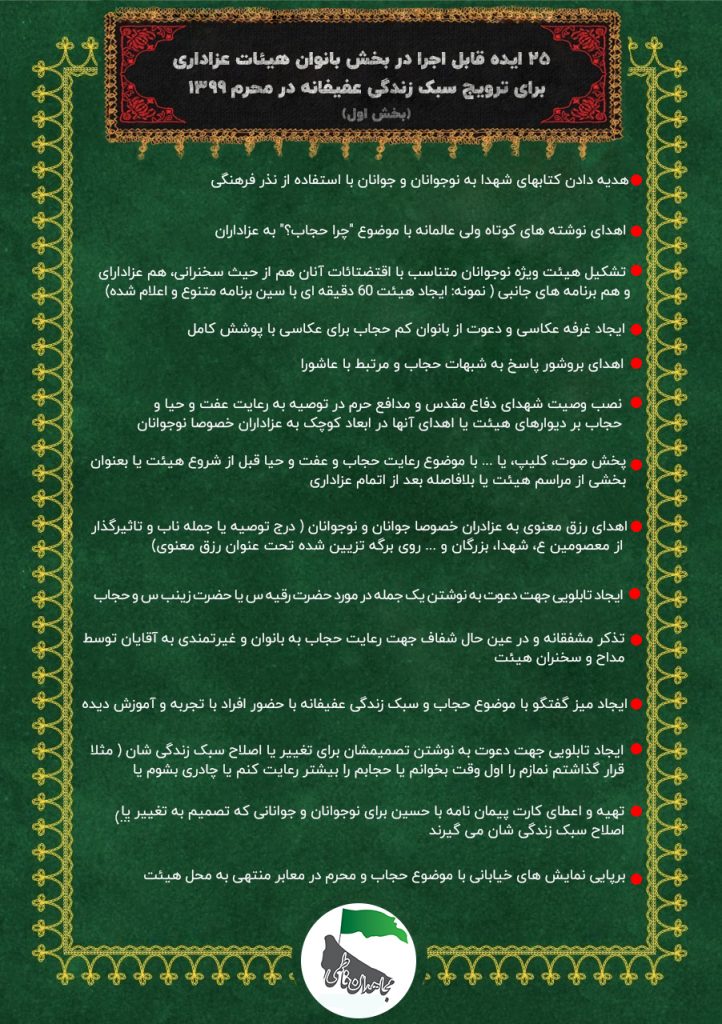 ۲۵ ایده قابل اجرا در بخش بانوان هیئات عزاداری
برای ترویج سبک زندگی عفیفانه در محرم ۱۳۹۹
(بخش اول)
هدیه دادن کتابهای شهدا به نوجوانان و جوانان با استفاده از نذر فرهنگی
اهدای نوشته های کوتاه ولی عالمانه با موضوع "چرا حجاب؟" به عزاداران
تشکیل هیئت ویژه نوجوانان متناسب با اقتضائات آنان هم از حیث سخنرانی، هم عزادارای
و هم برنامه های جانبی ( نمونه: ایجاد هیئت 60 دقیقه ای با سین برنامه متنوع و اعلام شده)
ایجاد غرفه عکاسی و دعوت از بانوان کم حجاب برای عکاسی با پوشش کامل
اهدای بروشور پاسخ به شبهات حجاب و مرتبط با عاشورا
نصب وصیت شهدای دفاع مقدس و مدافع حرم در توصیه به رعایت عفت و حیا و
حجاب بر دیوارهای هیئت یا اهدای آنها در ابعاد کوچک به عزاداران خصوصا نوجوانان
پخش صوت، کلیپ، یا ... با موضوع رعایت حجاب و عفت و حیا قبل از شروع هیئت یا بعنوان
بخشی از مراسم هیئت یا بلافاصله بعد از اتمام عزاداری
اهدای رزق معنوی به عزادران خصوصا جوانان و نوجوانان ( درج توصیه یا جمله ناب و تاثیرگذار
از معصومین ع، شهدا، بزرگان و ... روی برگه تزیین شده تحت عنوان رزق معنوی)
ایجاد تابلویی جهت دعوت به نوشتن یک جمله در مورد حضرت رقیه س یا حضرت زینب س و حجاب
تذکر مشفقانه و در عین حال شفاف جهت رعایت حجاب به بانوان و غیرتمندی به آقایان توسط
مداح و سخنران هیئت
ایجاد میز گفتگو با موضوع حجاب و سبک زندگی عفیفانه با حضور افراد با تجربه و آموزش دیده
ایجاد تابلویی جهت دعوت به نوشتن تصمیمشان برای تغییر یا اصلاح سبک زندگی شان ( مثلا
قرار گذاشتم نمازم را اول وقت بخوانم یا حجابم را بیشتر رعایت کنم یا چادری بشوم یا
...)
تهیه و اعطای کارت پیمان نامه با حسین برای نوجوانان و جوانانی که تصمیم به تغییر یا
اصلاح سبک زندگی شان می گیرند
برپایی نمایش های خیابانی با موضوع حجاب و محرم در معابر منتهی به محل هیئت
مجاهدان فاطمی